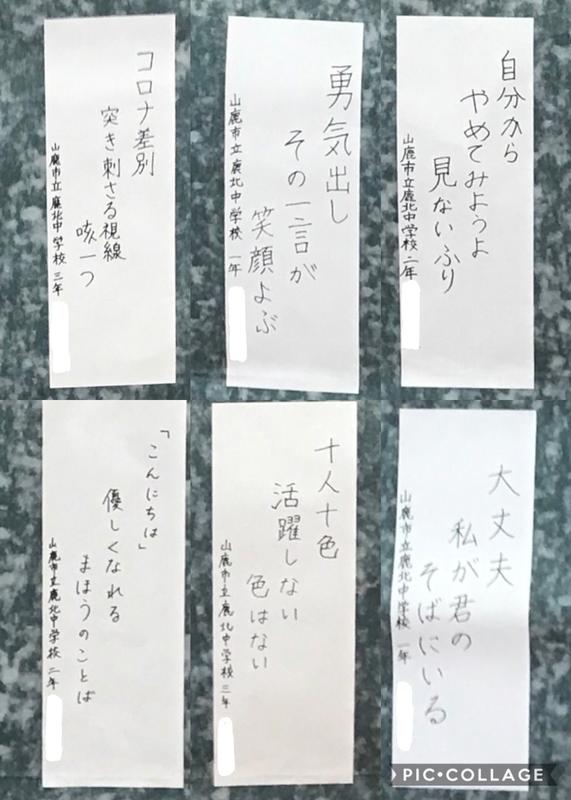 コロナ差別
突き刺さる視線
咳一つ
山鹿市立鹿北中学校 三年
勇気出し
その一言が
笑顔よぶ
山鹿市立鹿北中学校 一年
自分から
やめてみようよ
見ないふり
山鹿市立鹿北中学校 二年
「こんにちは」
優しくなれる
まほうのことば
山鹿市立鹿北中学校 二年
十人十色
活躍しない
色はない
山鹿市立鹿北中学校 三年
大丈夫
私が君の
そばにいる
山鹿市立鹿北中学校 一年
PIC•COLLAGE